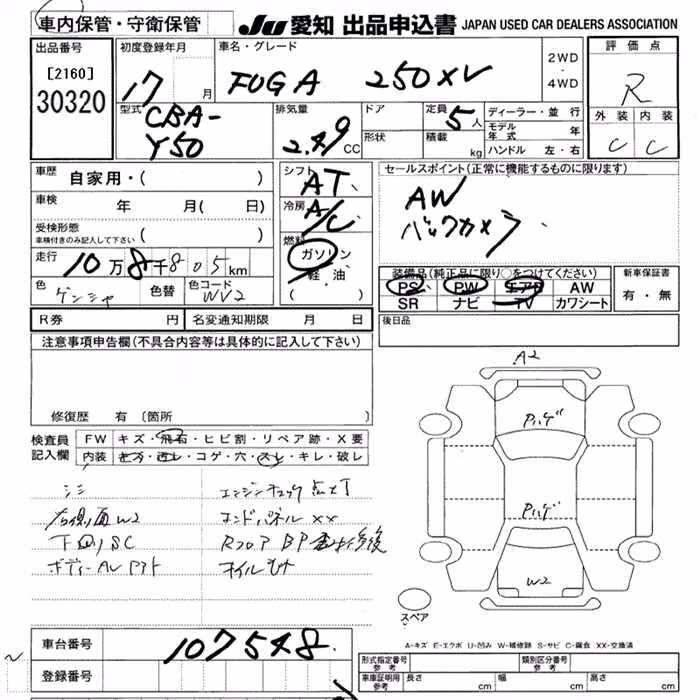 車内保管・守衛保管
JU 愛知 出品申込書 JAPAN USED CAR DEALERS ASSOCIATION
出品番号
[2160]
30320
初度登録年月
17 月
車名・グレード
FUGA 250XV
2WD
・
4WD
評価点
R
外装 内装
C C
型式
CBA-
Y50
排気量
2.49 CC
ドア
形状
定員
5人
積載 kg
ディーラー・並行
モデル年式 年
ハンドル 左・右
車歴
自家用・( )
車検
年 月( 日)
受検形態
車検付きのみ記入して下さい ( )
走行
10万8千805km
色
ゲンシャ
色替
色コード
WV2
シフト
AT
冷房
A/C
燃料
ガソリン
軽油
( )
セールスポイント(正常に機能するものに限ります)
AW
バックカメラ
装備品(純正品に限り○をつけてください)
PS PW エアB AW
SR ナビ TV カワシート
新車保証書
有・無
R券 円 名変通知期限 月 日
後日品
注意事項申告欄(不具合内容等は具体的に記入して下さい)
修復歴 有〔箇所
検査員
記入欄
FW キズ・飛石・ヒビ割・リペア跡・X要
内装 キズ・汚レ・コゲ・穴・スレ・キレ・破レ
シミ エンジンチェック点灯
右側面W2 エンドパネルXX
下回りSC RフロアBP
オイル
A2
Pハゲ
Pハゲ
W2
スペア
A-キズ E-エクボ U-凹み W-補修跡 S-サビ C-腐食 XX-交換済
車台番号
107548
登録番号
形式指定番号
参考
類別区分番号
参考
車庫証明用
参考
長さ cm 幅 cm 高さ cm